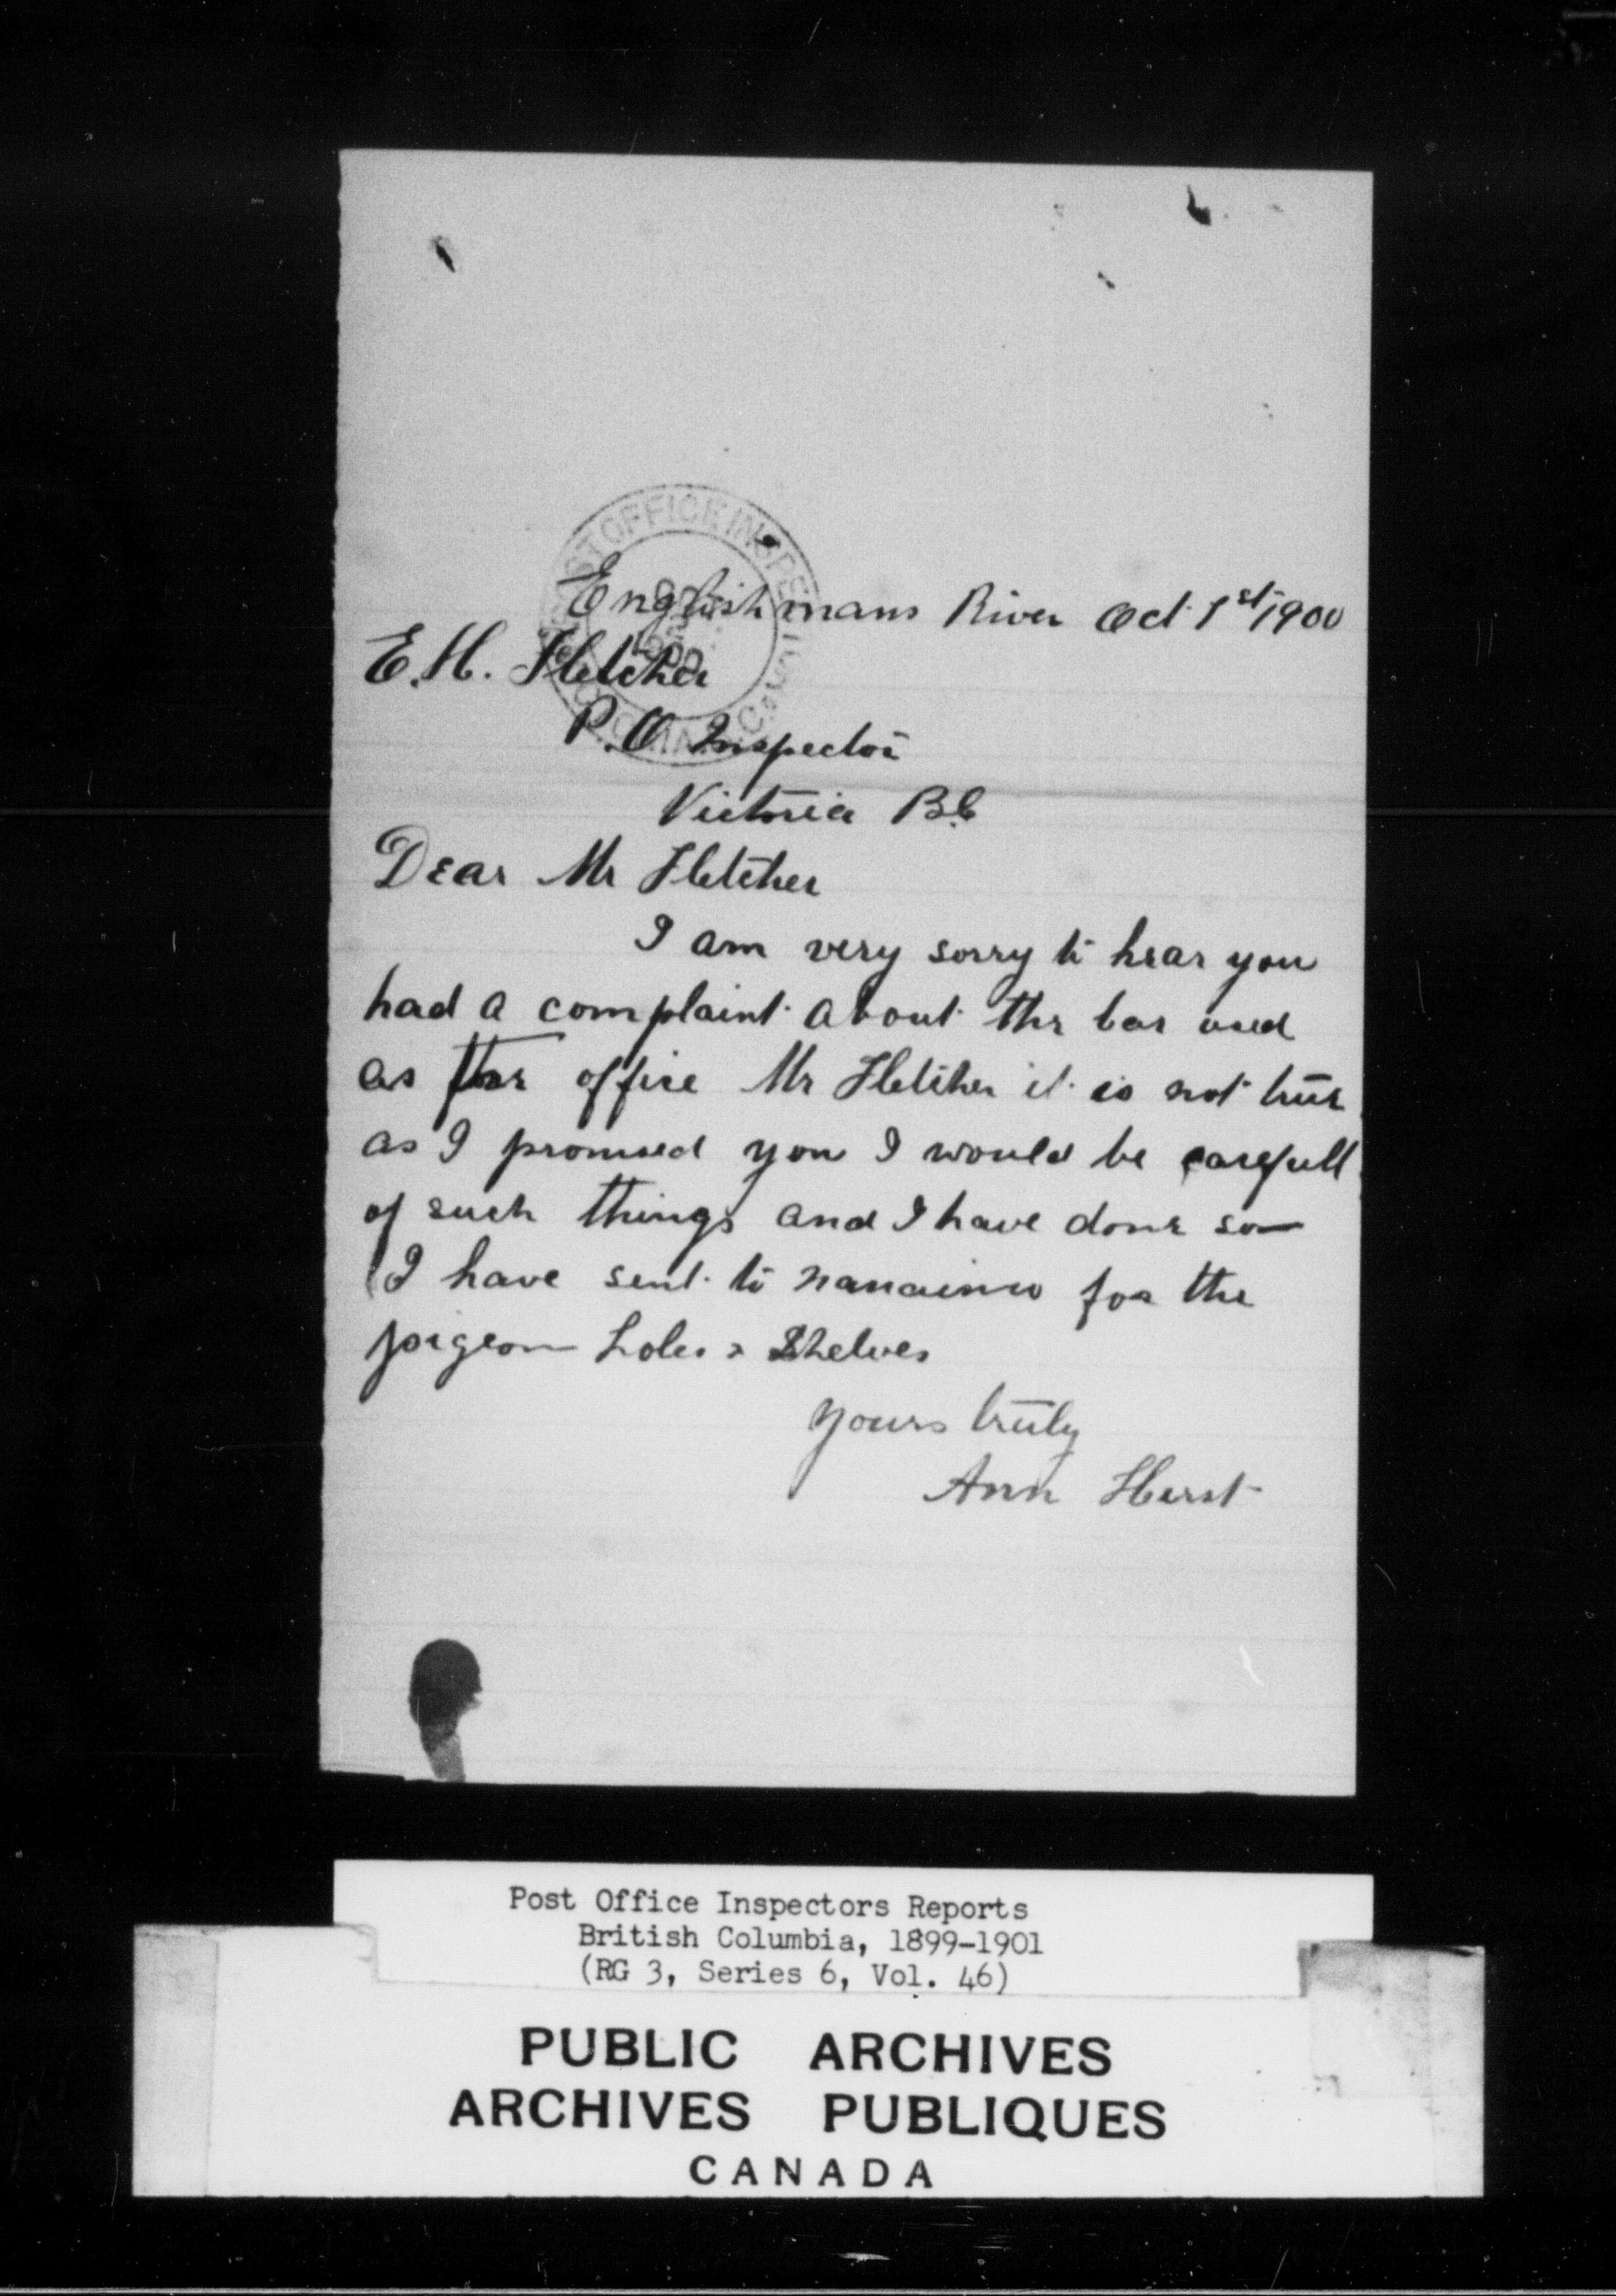 POST OFFICE INSPE
Englishmans River Oct 1st 1900
E. H. Fletcher
P. O Inspector
Victoria B.C
Dear Mr Fletcher
I am very sorry to hear you
had a complaint about the bar used
as the office Mr Fletcher it is not true
as I promised you I would be carefull
of such things and I have done so
I have sent to nanaimo for the
pigeon holes & Shelves
yours truly
Ann Hirst
Post Office Inspectors Reports
British Columbia, 1899-1901
(RG 3, Series 6, Vol. 46)
PUBLIC ARCHIVES
ARCHIVES PUBLIQUES
CANADA